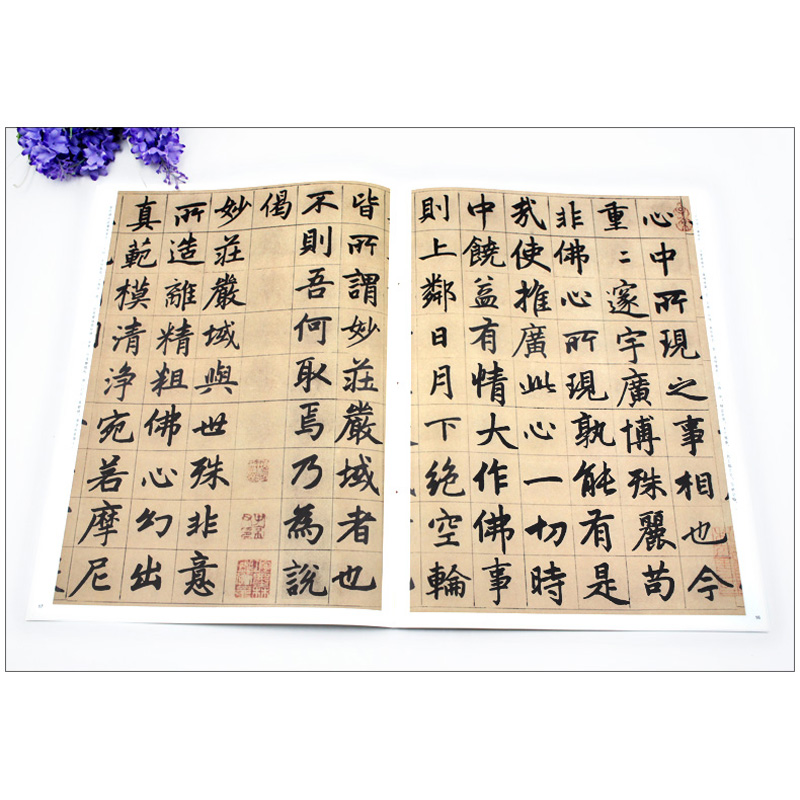 心中所現之事相也今
重〻邃宇廣博殊麗苟
非佛心所現孰能有是
哉使推廣此心一切時
中饒益有情大作佛事
則上鄰日月下絕空輪
皆所謂妙莊嚴域者也
不則吾何取焉乃為說
偈
妙莊嚴域與世殊非意
所造離精粗佛心幻出
真範模清淨宛若摩尼